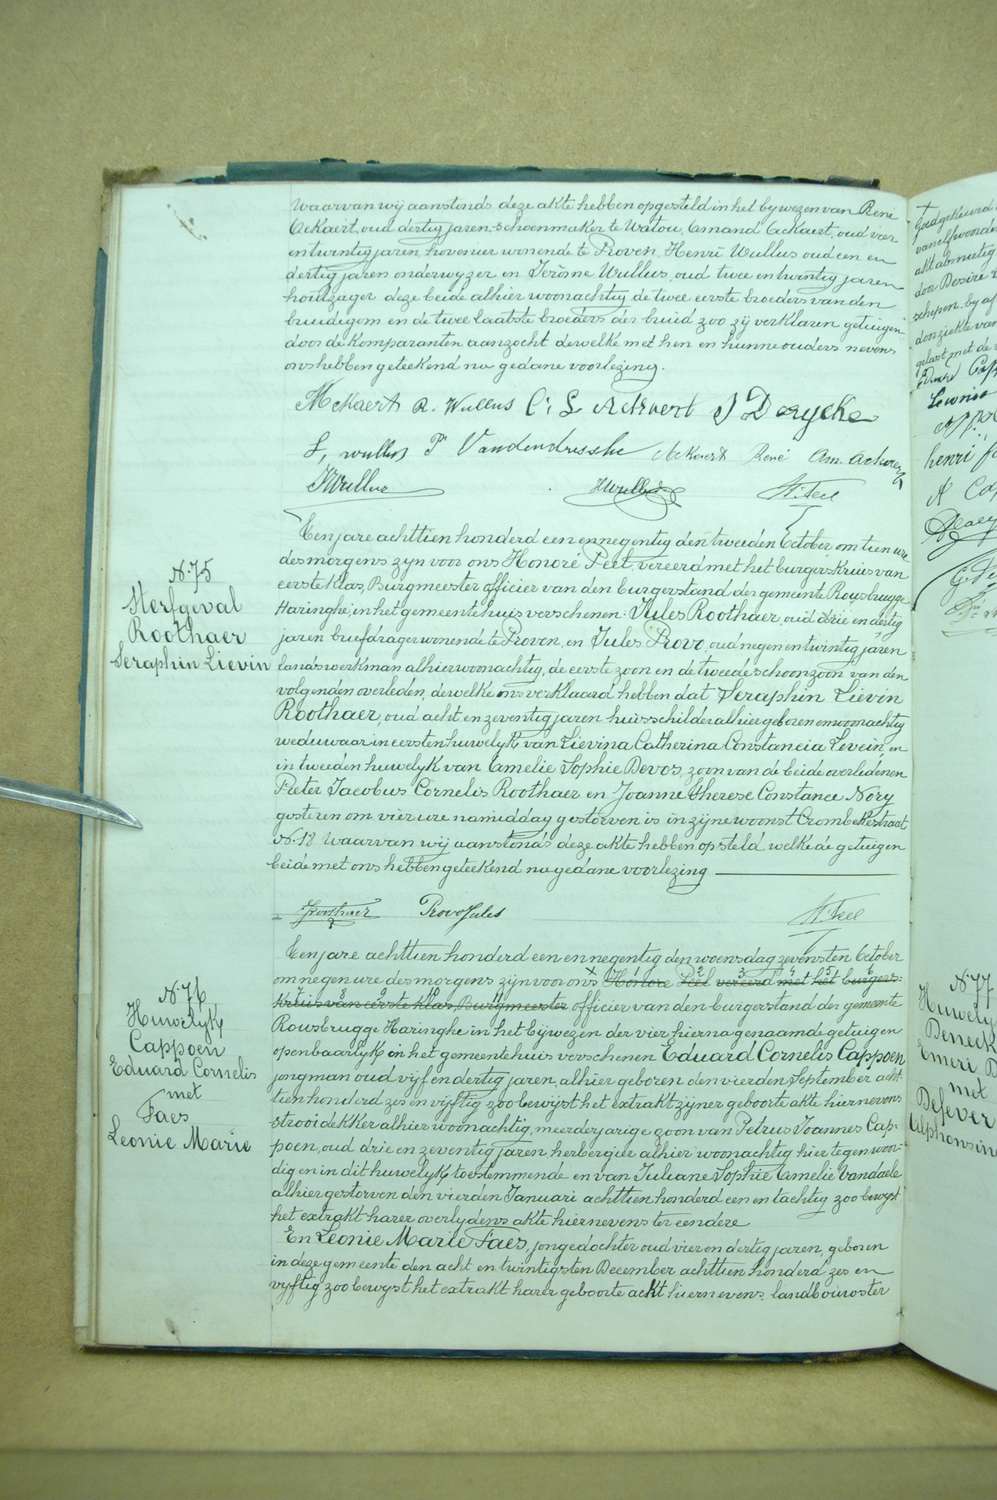 Waarvan wij aanstonds deze akte hebben opgesteld in het bywezen van René
Ackaert, oud dertig jaren schoenmaker te Watou, Amand Ackaert, oud vier
en twintig jaren, hovenier wonende te Proven, Henri Wullus oud een en
dertig jaren onderwyzer en Jerôme Wullus, oud twee en twintig jaren
houtzager deze beide alhier woonachtig de twee eerste broeders van den
bruidegom en de twee laatste broeders der bruid zoo zij verklaren getuigen
door de komparanten aanzocht dewelke met hen en hunne ouders nevens
ons hebben geteekend na gedane voorlezing.
MCkaert R. Wullus C: L Ackaert J Derycke
L, wullus P. Vandendriessche Ackaert René Am. Ackaert
JWullus HWullus H. Peel
N. 75
Sterfgeval
Roothaer
Seraphin Lievin
Een jare achttien honderd een en negentig den tweeden October om tien ure
des morgens zijn voor ons Honoré Peel, vereerd met het burgerskruis van
eerste klas, Burgmeester officier van den burgerstand der gemeente Rousbrugge
Haringhe in het gemeentehuis verschenen Jules Roothaer, oud drie en dertig
jaren briefdrager wonende te Proven, en Jules Provo, oud negen en twintig jaren
landswerkman alhier woonachtig, de eerste zoon en de tweede schoonzoon van den
volgenden overleden, dewelke ons verklaard hebben dat Seraphin Lievin
Roothaer, oud acht en zeventig jaren huisschilder alhier geboren en woonachtig
weduwaar in eersten huwelyk van Lievina Catherina Constancia Levein, en
in tweeden huwelyk van Amelie Sophie Devos, zoon van de beide overledenen
Pieter Jacobus Cornelis Roothaer en Joanne Therese Constance Nory
gisteren om vier ure namiddag gestorven is in zijne woonst Crombekestraat
N. 18 Waarvan wij aanstonds deze akte hebben opsteld welke de getuigen
beide met ons hebben geteekend na gedane voorlezing
J Roothaer Provo Jules H. Peel
N. 76
Huwelyk
Cappoen
Eduard Cornelis
met
Faes
Leonie Marie
Een jare achttien honderd een en negentig den woensdag zevensten October
om negen ure des morgens zijn voor ons x Honoré Peel vereerd met het burgers:
kruis van eerste klas, Burgmeester officier van den burgerstand der gemeente
Rousbrugge Haringhe in het bywezen der vier hierna genaamde getuigen
openbaarlyk in het gemeentehuis verschenen Eduard Cornelis Cappoen
jongman oud vijf en dertig jaren, alhier geboren den vierden September acht
tien honderd zes en vyftig zoo bewyst het extrakt zijner geboorte akte hiernevens
strooidekker alhier woonachtig, meerderjarige zoon van Petrus Joannes Cap-
poen, oud drie en zeventig jaren herbergier alhier woonachtig hier tegenwoor-
dig en in dit huwelyk toestemmende en van Juliane Sophie Amelie Vandaele
alhier gestorven den vierden Januari achttien honderd een en tachtig zoo bewyst
het extrakt harer overlydens akte hiernevens ter eendere
En Leonie Marie Faes, jongedochter oud vier en dertig jaren, geboren
in deze gemeente den acht en twintigsten December achttien honderd zes en
vyftig zoo bewyst het extrakt harer geboorte ackt hiernevens, landbouwster
Goedgekeurd
door Desiré
schepen, by af
henri
N. 77
Huwely
Deneck
Emeri D
met
Defever
Alphonsin